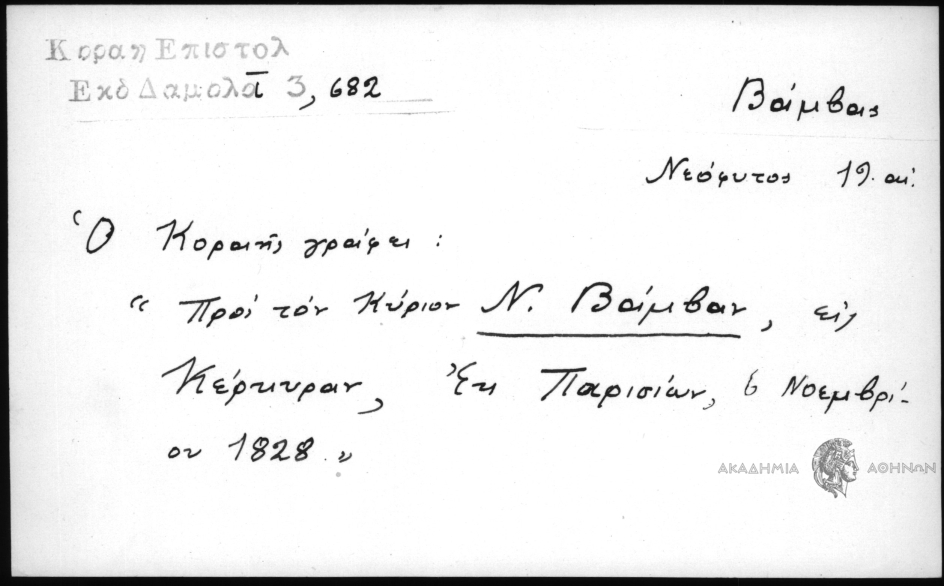 Κοραη Επιστολ
Εκδ Δαμαλα Τ 3, 682
Βάμβας
Νεόφυτος 19. αἰ.
Ὁ Κοραῆς γράφει :
“ Πρὸς τόν Κύριον Ν. Βάμβαν, εἰς
Κέρκυραν, Ἐκ Παρισίων, 6 Νοεμβρί-
ου 1828 „
ΑΚΑΔΗΜΙΑ ΑΘΗΝΩΝ